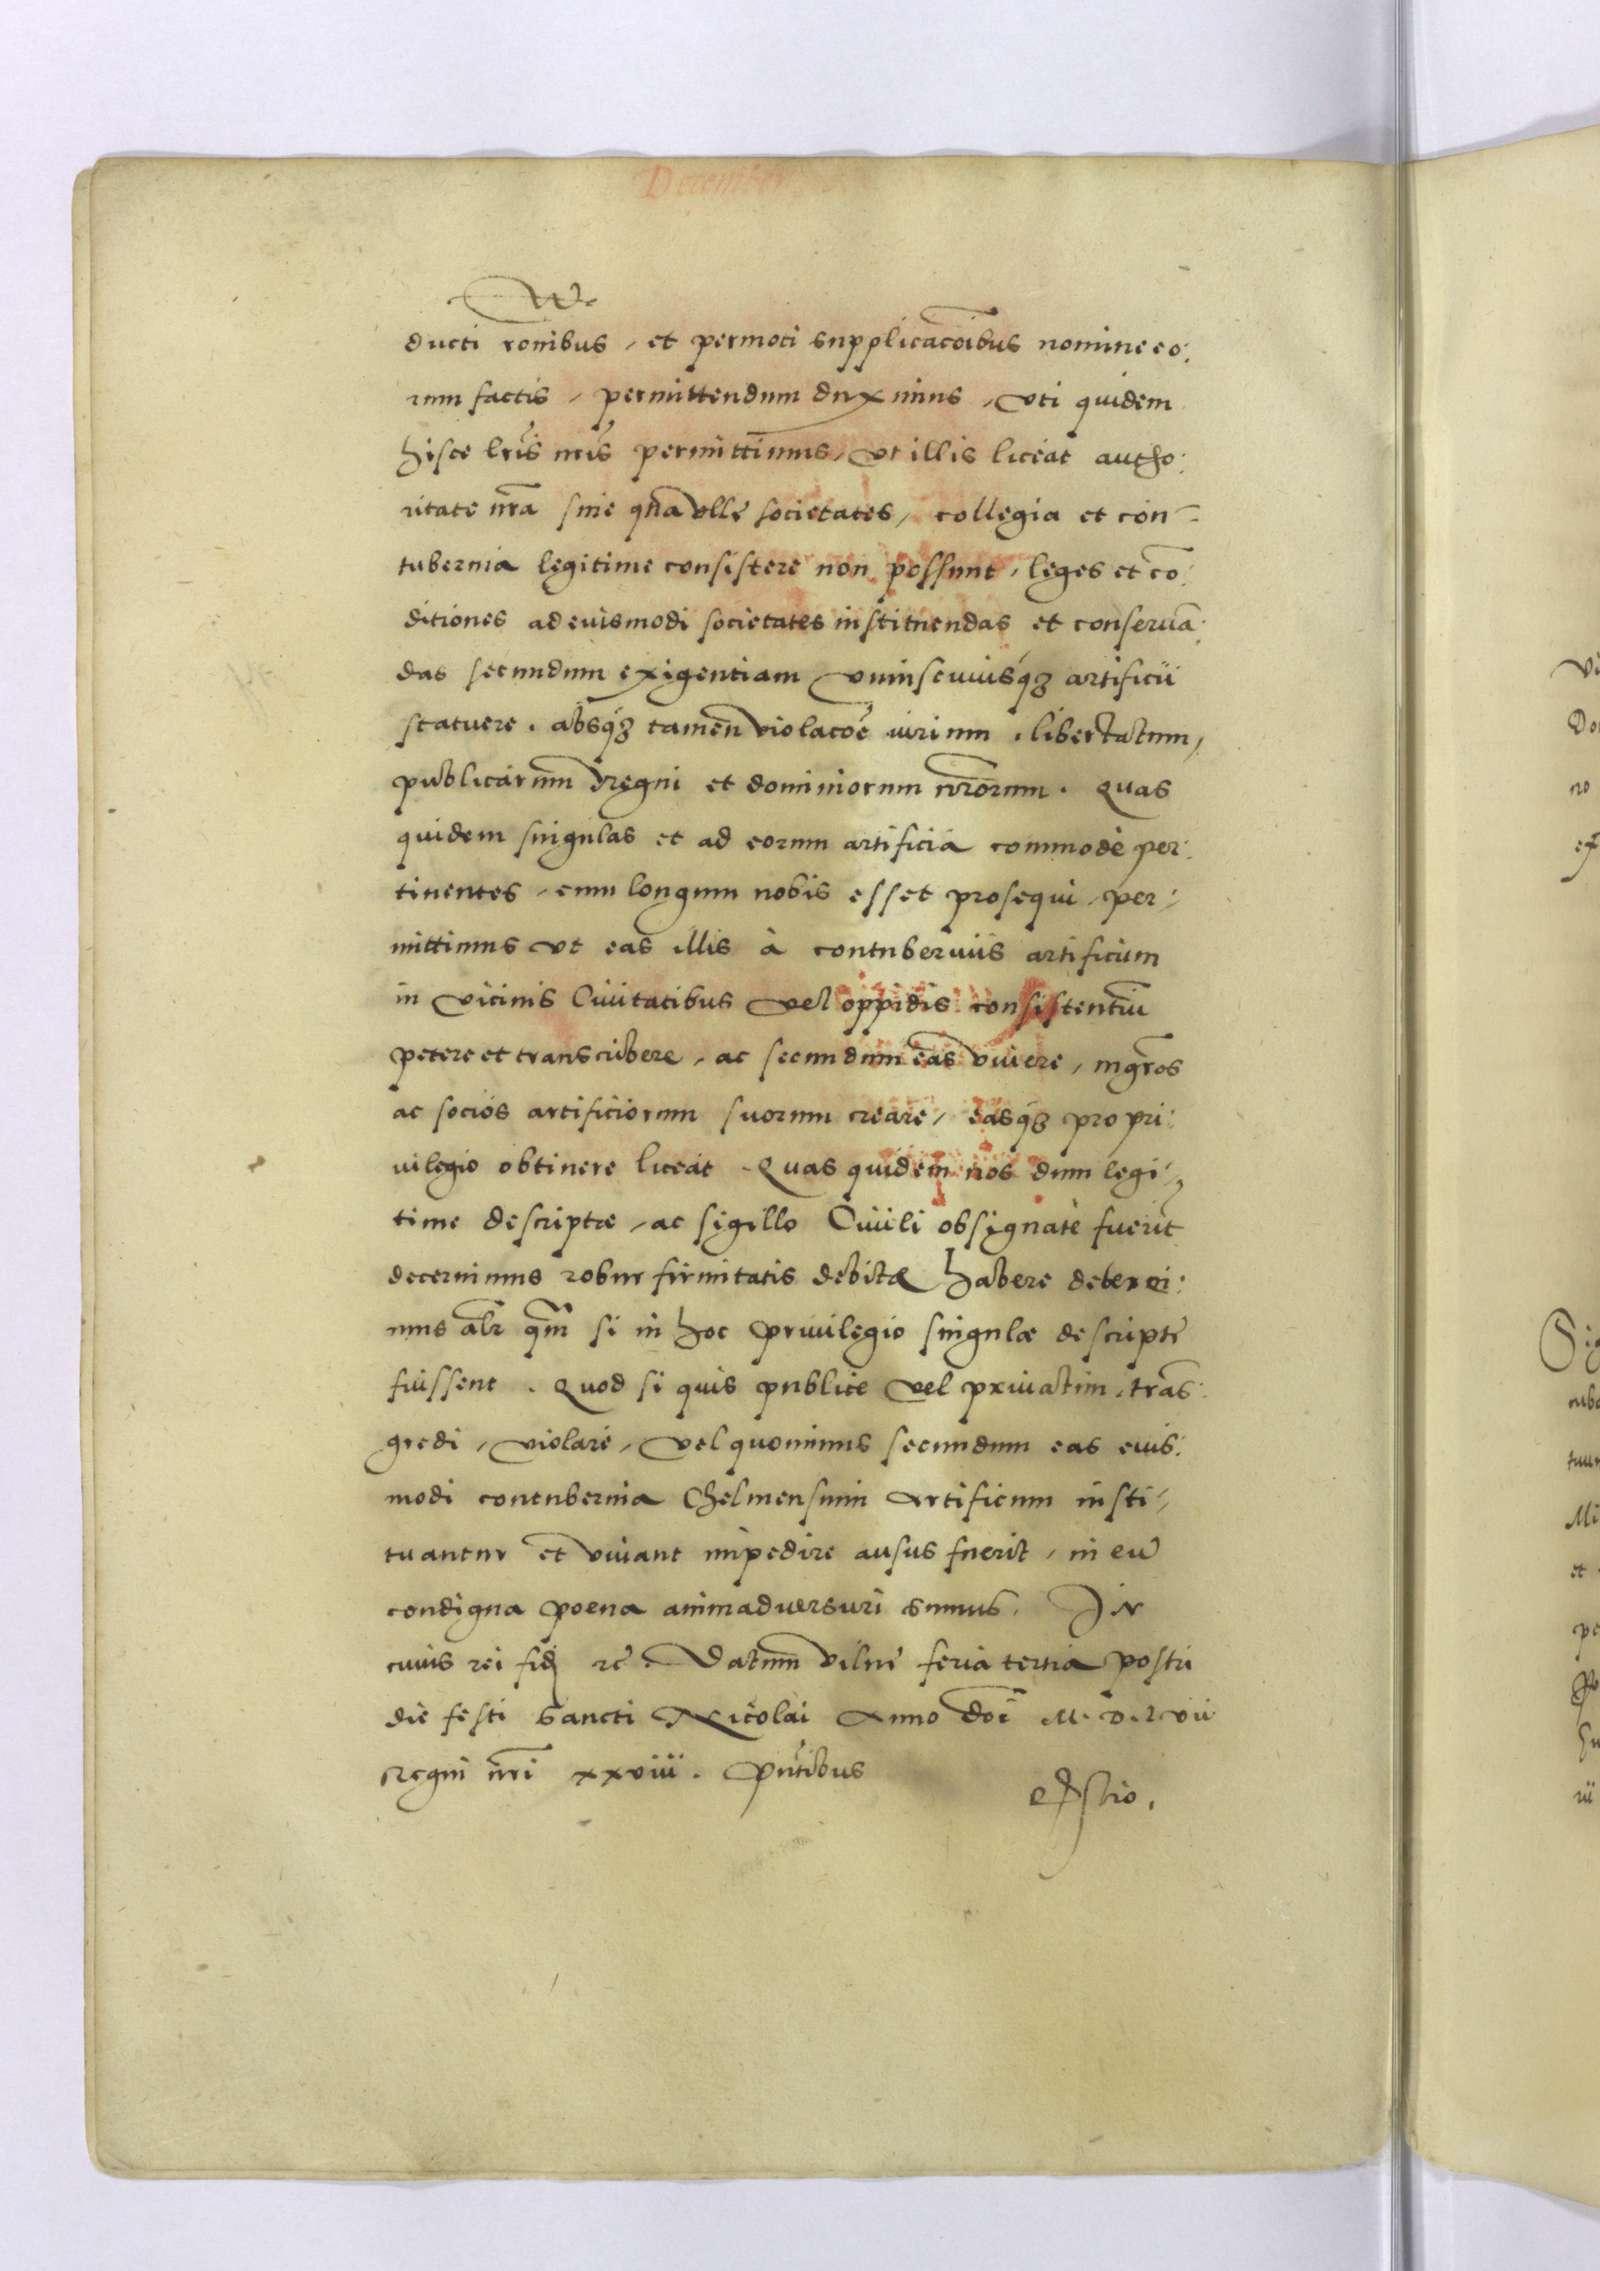 ducti ronibus, et permoti supplicacōibus nomine eo:
rum factis, permittendum duximus, vti quidem
hisce lr̄is nr̄is permittimus, vt illis liceat autho:
ritate nr̄a sine qua vllę societates, collegia et con-
tubernia legitime consistere non possunt, leges et cō:
ditiones ad euismodi societates instituendas et conseruā:
das secundum exigentiam vniuscuiusq́ȝ artificii
statuere. absq́ȝ tamen violacōe iurium. libertatum,
publicarum regni et dominiorum nr̄orum. Quas
quidem singulas et ad eorum artificia commodè per:
tinentes, cum longum nobis esset prosequi, per-
mittimus vt eas illis à contuberniis artificum
in vicinis Ciuitatibus vel oppidis consistentiū
petere et transcribere, ac secundum eas viuere, mgr̄os
ac socios artificiorum suorum creare, easq́ȝ pro pri:
uilegio obtinere liceat. Quas quidem nos dum legi-
time descriptæ, ac sigillo Ciuili obsignatę fuerīt
decernimus robur firmitatis debitæ habere deber〈e〉:
mus al̄r qm̄ si in hoc priuilegio singulæ descriptę
fuissent. Quod si quis publice vel priuatim, trās:
gredi, violare, vel quominus secundum eas eius:
modi contubernia Chelmensium Artificum insti-
tuantur et viuant impedire ausus fuerit, in eū
condigna poena animaduersuri sumus. In
cuius rei fidē rc̄. Datum Vilnę feria tertia postri
die festi Sancti Nicolai Anno doī M. D. Lvii
Regni nr̄i xxviii. Pn̄tibus